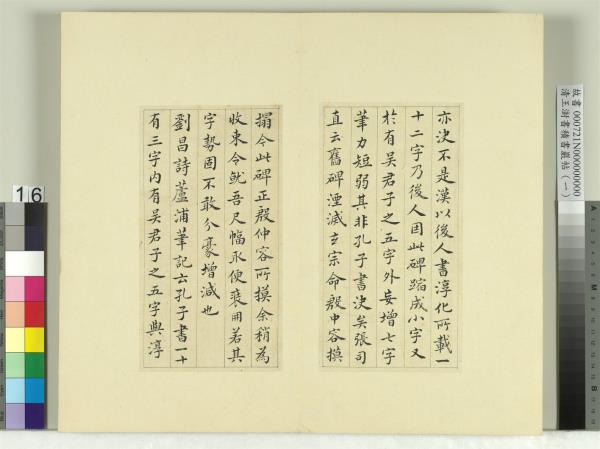 亦決不是漢以後人書淳化所載一
十二字乃後人因此碑蹜成小字又
於有吳君子之五字外妄增七字
筆力短弱其非孔子書決矣張司
直云舊碑湮滅玄宗命殷中容摸
搨今此碑正殷仲容所摸余稍為
收束令就吾尺幅永便裝冊若其
字勢固不敢分豪增減也
劉昌詩蘆浦筆記云孔子書一十
有三字內有吳君子之五字與淳
故書 000721N000000000
清王澍書積書巖帖(一)
16